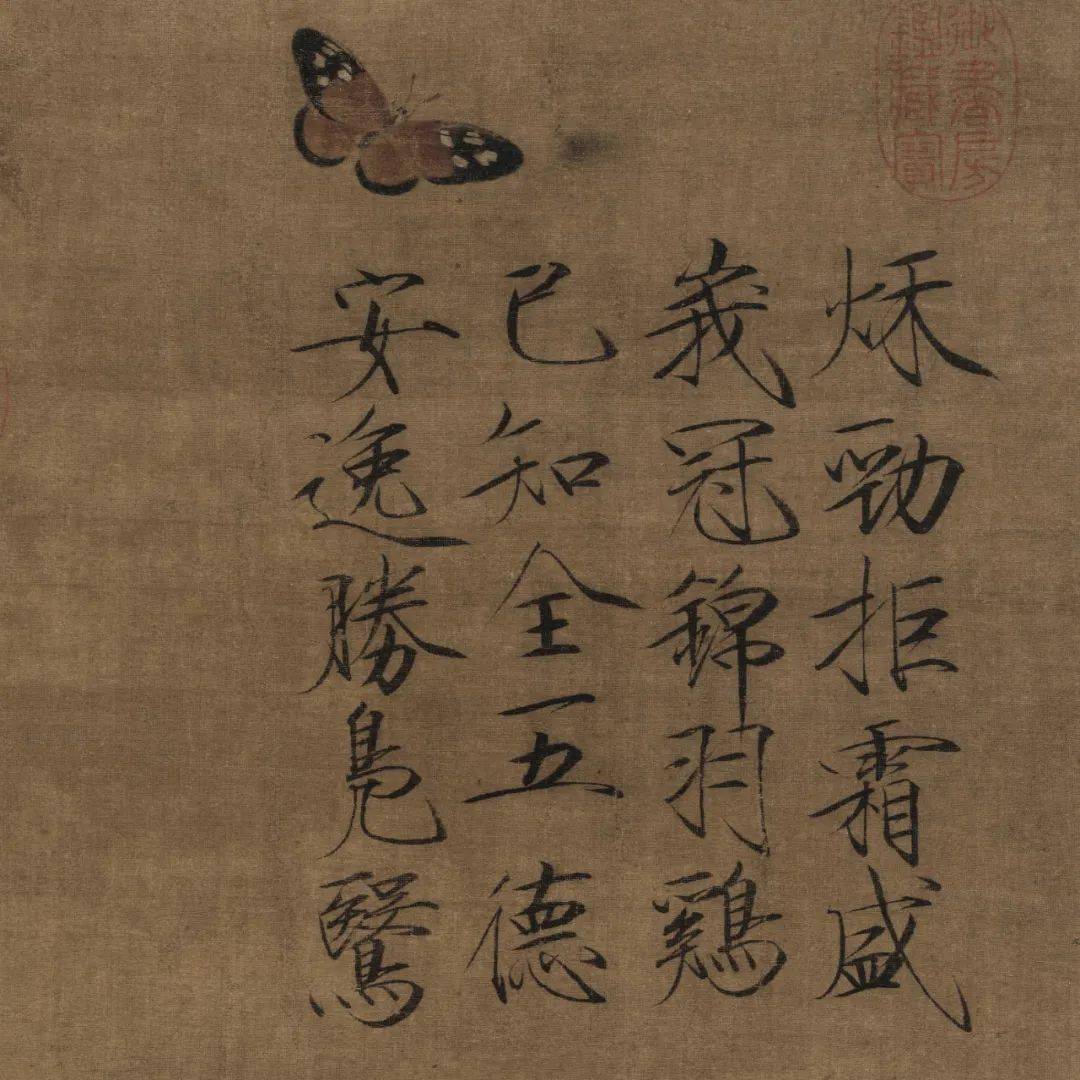 秌勁拒霜盛
峩冠錦羽鷄
已知全五德
安逸勝鳧鷖
御書房鑑藏寶